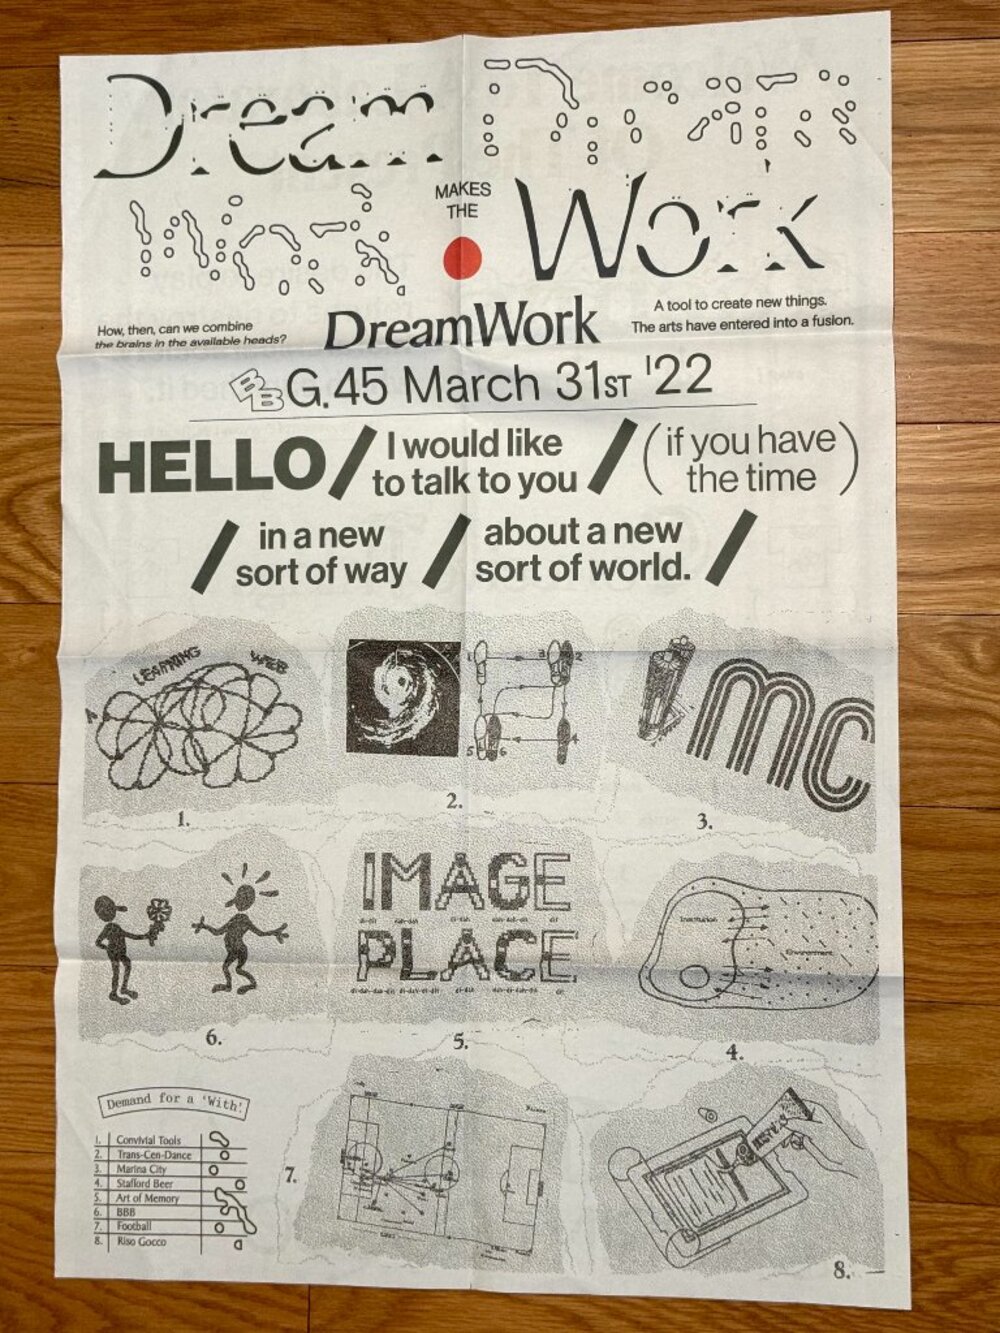 Dream Dream
Work MAKES
THE Work
How, then, can we combine
the brains in the available heads?
DreamWork
A tool to create new things.
The arts have entered into a fusion.
BB G.45 March 31ST '22
HELLO / I would like
to talk to you / (if you have
the time)
/ in a new
sort of way / about a new
sort of world. /
LEARNING WEB
A
1.
1 3 2
5 6 4
2.
mc
3.
6.
IMAGE
PLACE
5.
Institution
Environment
4.
Demand for a 'With'!
1. Convivial Tools
2. Trans-Cen-Dance
3. Marina City
4. Stafford Beer
5. Art of Memory
6. BBB
7. Football
8. Riso Gocco
7.
8.